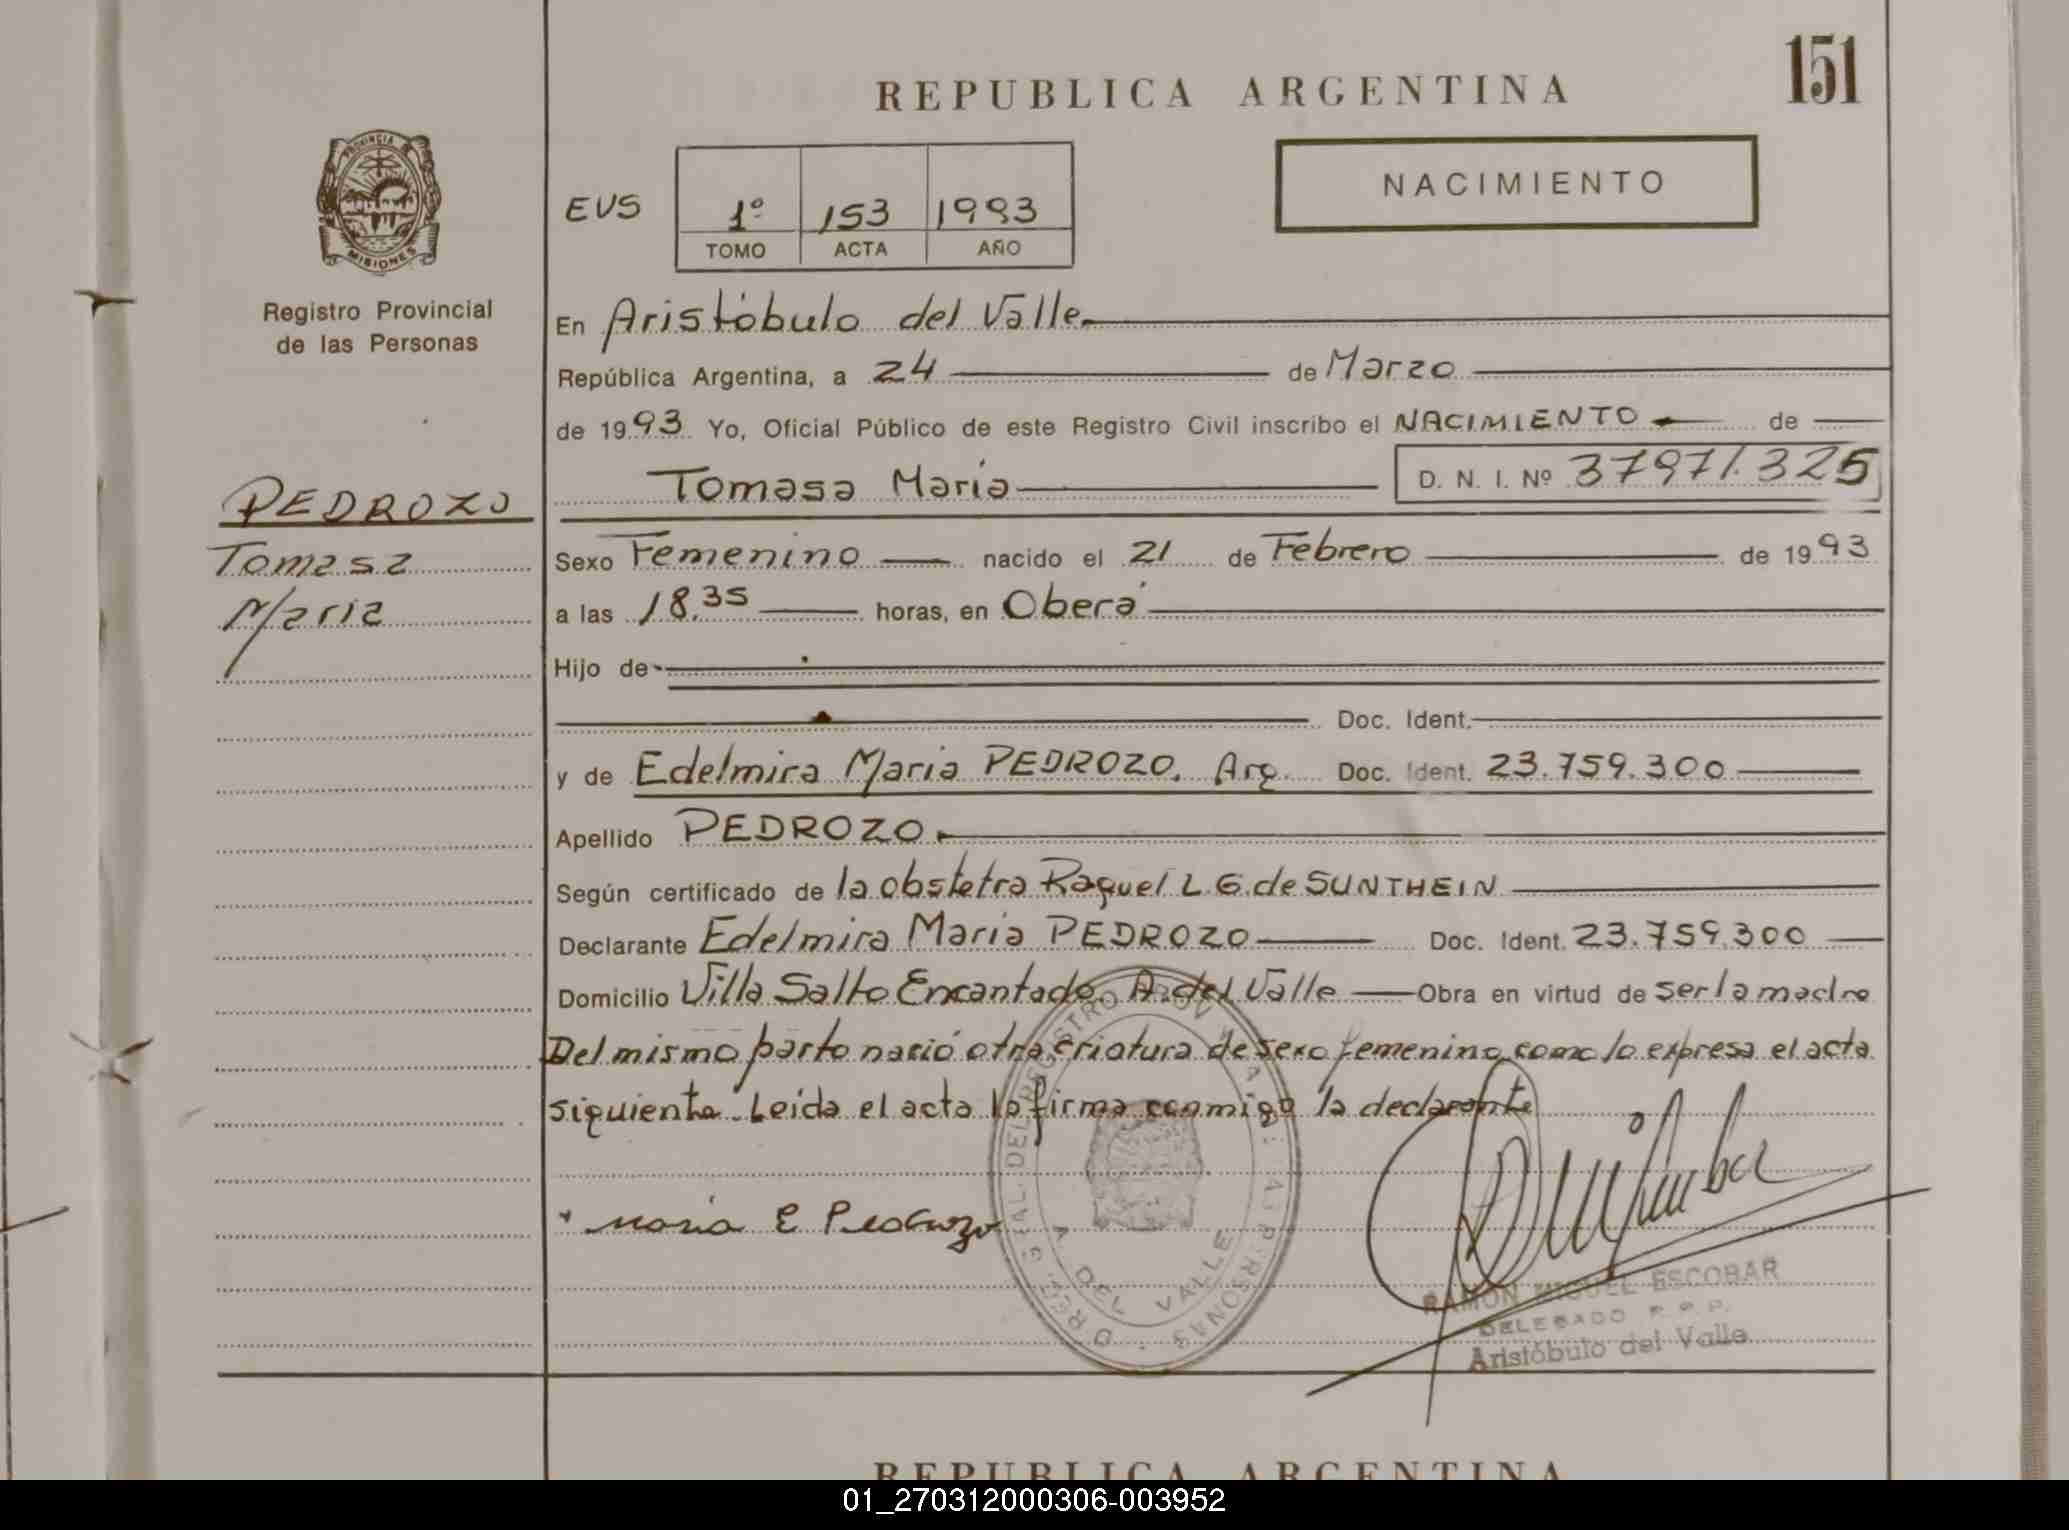 151
REPUBLICA ARGENTINA
PROVINCIA DE
MISIONES
Registro Provincial
de las Personas
EVS
1º 153 1993
TOMO ACTA AÑO
NACIMIENTO
En Aristóbulo del Valle
República Argentina, a 24 de Marzo
de 1993 Yo, Oficial Público de este Registro Civil inscribo el NACIMIENTO de
Tomasa Maria D. N. I. Nº 37971.325
PEDROZO
Tomasa
Maria
Sexo Femenino nacido el 21 de Febrero de 1993
a las 18,35 horas, en Oberá
Hijo de
Doc. Ident.
y de Edelmira Maria PEDROZO. Arg. Doc. Ident. 23.759.300
Apellido PEDROZO
Según certificado de la obstetra Raquel L. G. de SUNTHEIN
Declarante Edelmira Maria PEDROZO Doc. Ident. 23.759.300
Domicilio Villa Salto Encantado. A. del Valle Obra en virtud de ser la madre
Del mismo parto nació otra criatura de sexo femenino como lo expresa el acta
siguiente. Leida el acta la firma conmigo la declarante
Maria E Pedrozo
A DEL VALLE
RAMON MIGUEL ESCOBAR
DELEGADO R.P.P.
Aristóbulo del Valle
REPUBLICA ARGENTINA
01_270312000306-003952